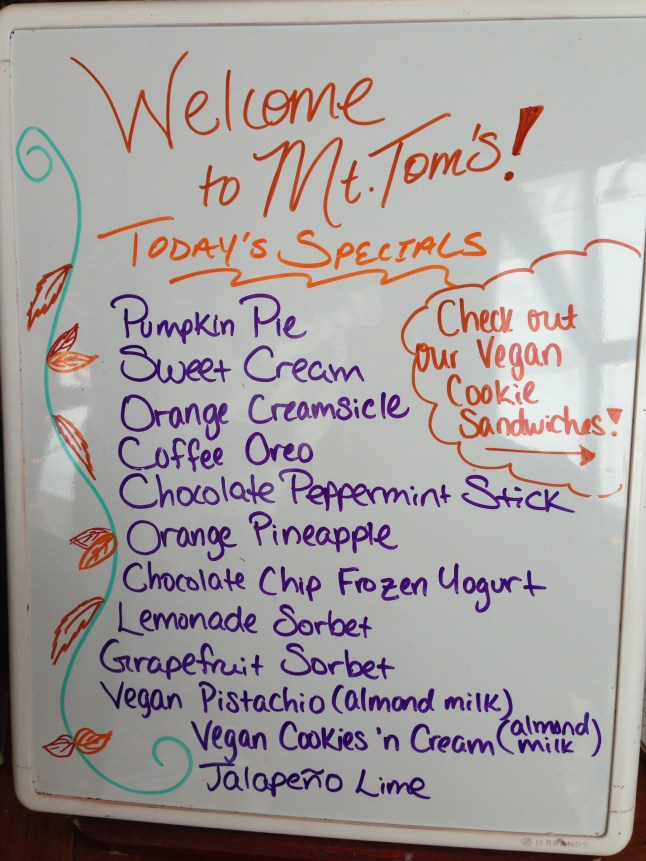 Welcome
to Mt. Tom's!
TODAY'S SPECIALS
Pumpkin Pie
Sweet Cream
Orange Creamsicle
Coffee Oreo
Chocolate Peppermint Stick
Orange Pineapple
Chocolate Chip Frozen Yogurt
Lemonade Sorbet
Grapefruit Sorbet
Vegan Pistachio (almond milk)
Vegan Cookies 'n Cream (almond milk)
Jalapeño Lime
Check out
our Vegan
Cookie
Sandwiches!
U BRANDS